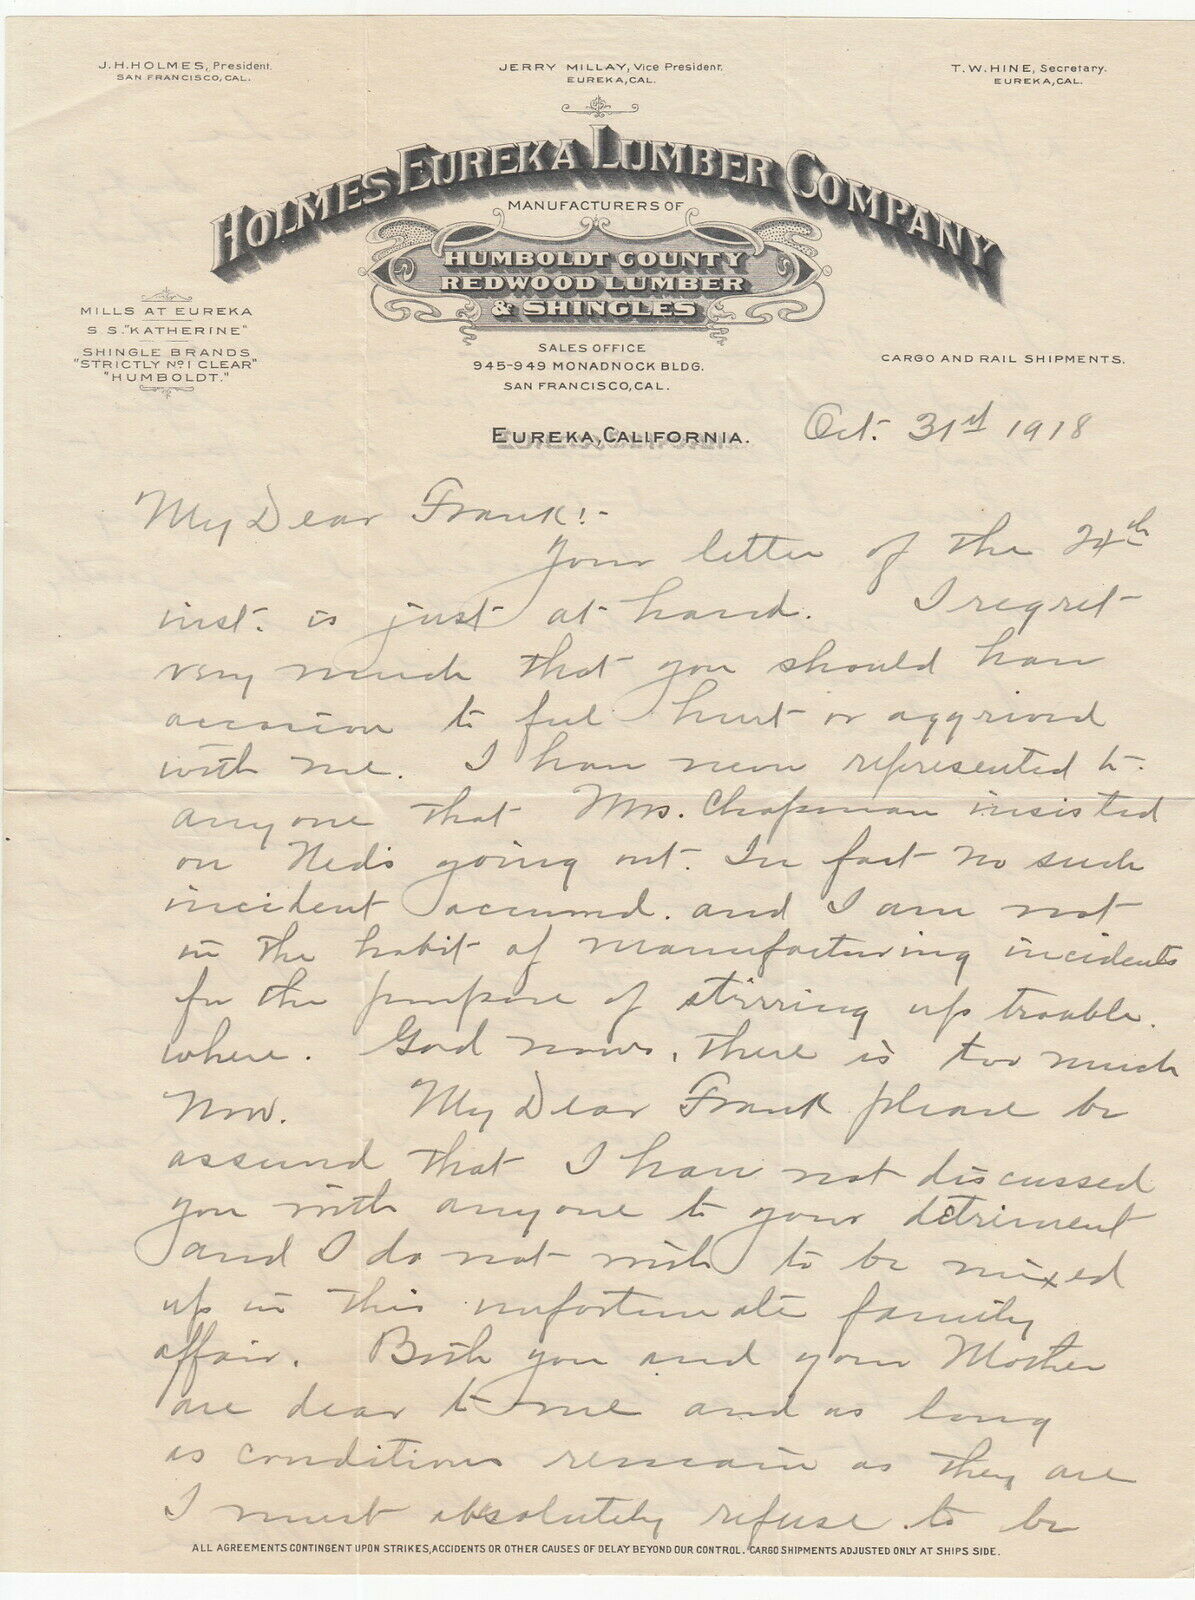 J.H.HOLMES, President.
SAN FRANCISCO, CAL.
JERRY MILLAY, Vice President.
EUREKA, CAL.
T.W.HINE, Secretary.
EUREKA, CAL.
HOLMES EUREKA LUMBER COMPANY
MANUFACTURERS OF
HUMBOLDT COUNTY
REDWOOD LUMBER
& SHINGLES
MILLS AT EUREKA
S.S."KATHERINE"
SHINGLE BRANDS
"STRICTLY Nº1 CLEAR"
"HUMBOLDT."
SALES OFFICE
945-949 MONADNOCK BLDG.
SAN FRANCISCO, CAL.
CARGO AND RAIL SHIPMENTS.
EUREKA, CALIFORNIA. Oct. 31st 1918
My Dear Frank!-
Your letter of the 24th
inst. is just at hand. I regret
very much that you should have
occasion to feel hurt or aggrieved
with me. I have never represented to
anyone that Mrs. Chapman insisted
on Ned's going out. In fact no such
incident occurred. and I am not
in the habit of manufacturing incidents
for the purpose of stirring up trouble.
where. God nows, there is too much
now. My Dear Frank please be
assured that I have not discussed
you with anyone to your detriment
and I do not wish to be mixed
up in this unfortunate family
affair. Both you and your Mother
are dear to me and as long
as conditions remain as they are
I must absolutely refuse to be
ALL AGREEMENTS CONTINGENT UPON STRIKES, ACCIDENTS OR OTHER CAUSES OF DELAY BEYOND OUR CONTROL. CARGO SHIPMENTS ADJUSTED ONLY AT SHIPS SIDE.